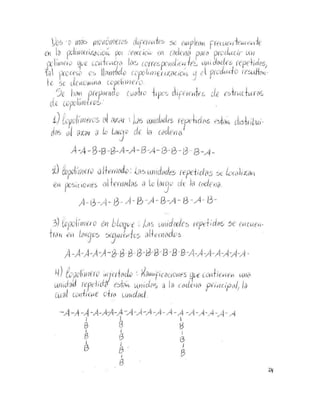 Dos o más monómeros diferentes se emplean frecuentemente
en la polimerización por reacción en cadena para producir un
polímero que contenga las correspondientes unidades repetidas,
tal proceso es llamado copolimerización y el producto resultan-
te se denomina copolímero.
Se han preparado cuatro tipos diferentes de estructuras
de copolímeros:
1) Copolímeros al azar: Las unidades repetidas están distribui-
das al azar a lo largo de la cadena
A-A-B-B-B-A-A-B-A-B-B-B-B-A-
2) Copolímero alternado: Las unidades repetidas se localizan
en posiciones alternadas a lo largo de la cadena.
A-B-A-B-A-B-A-B-A-B-A-B-
3) Copolímero en bloque: Las unidades repetidas se encuen-
tran en largos segmentos alternados.
A-A-A-A-A-B-B-B-B-B-B-B-B-A-A-A-A-A-A-
4) Copolímero injertado: Ramificaciones que contienen una
unidad repetida están unidas a la cadena principal, la
cual contiene otra unidad.
-A-A-A-A-A-A-A-A-A-A-A-A-A-A-A-A-A
B B B
B B B
B B B
B